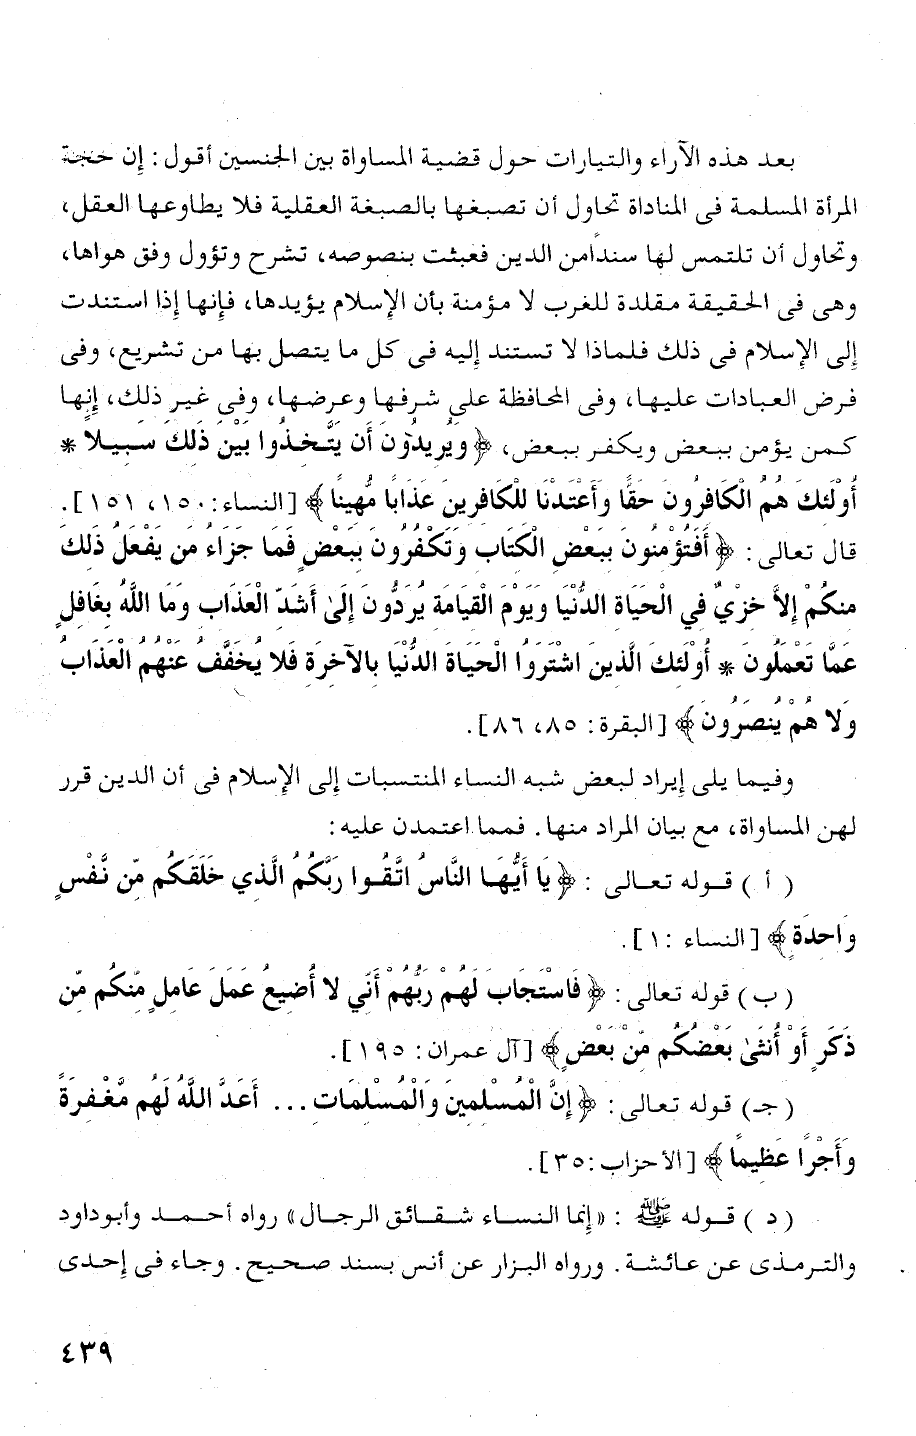 بعد هذه الآراء والتيارات حول قضية المساواة بين الجنسين أقول : إن حجة
المرأة المسلمة فى المناداة تحاول أن تصبغها بالصبغة العقلية فلا يطاوعها العقل،
وتحاول أن تلتمس لها سندًا من الدين فعبثت بنصوصه، تشرح وتؤول وفق هواها،
وهى فى الحقيقة مقلدة للغرب لا مؤمنة بأن الإسلام يؤيدها، فإنها إذا استندت
إلى الإسلام فى ذلك فلماذا لا تستند إليه فى كل ما يتصل بها من تشريع، وفى
فرض العبادات عليها، وفى المحافظة على شرفها وعرضها، وفى غير ذلك، إنها
كمن يؤمن ببعض ويكفر ببعض، ﴿ وَيُرِيدُونَ أَن يَتَّخِذُوا بَيْنَ ذَلِكَ سَبِيلاً *
أُوْلَئِكَ هُمُ الْكَافِرُونَ حَقًّا وَأَعْتَدْنَا لِلْكَافِرِينَ عَذَابًا مُّهِينًا ﴾ [النساء: ١٥٠، ١٥١].
قال تعالى : ﴿ أَفَتُؤْمِنُونَ بِبَعْضِ الْكِتَابِ وَتَكْفُرُونَ بِبَعْضٍ فَمَا جَزَاءُ مَن يَفْعَلُ ذَلِكَ
مِنكُمْ إِلاَّ خِزْيٌ فِي الْحَيَاةِ الدُّنْيَا وَيَوْمَ الْقِيَامَةِ يُرَدُّونَ إِلَىٰ أَشَدِّ الْعَذَابِ وَمَا اللَّهُ بِغَافِلٍ
عَمَّا تَعْمَلُونَ * أُوْلَئِكَ الَّذِينَ اشْتَرَوُا الْحَيَاةَ الدُّنْيَا بِالآخِرَةِ فَلا يُخَفَّفُ عَنْهُمُ الْعَذَابُ
وَلا هُمْ يُنصَرُونَ ﴾ [البقرة: ٨٥، ٨٦].
وفيما يلى إيراد لبعض شبه النساء المنتسبات إلى الإسلام فى أن الدين قرر
لهن المساواة، مع بيان المراد منها. فمما اعتمدن عليه:
( أ ) قوله تعالى : ﴿ يَا أَيُّهَا النَّاسُ اتَّقُوا رَبَّكُمُ الَّذِي خَلَقَكُم مِّن نَّفْسٍ
وَاحِدَةٍ ﴾ [النساء :١].
( ب ) قوله تعالى : ﴿ فَاسْتَجَابَ لَهُمْ رَبُّهُمْ أَنِّي لا أُضِيعُ عَمَلَ عَامِلٍ مِّنكُم مِّن
ذَكَرٍ أَوْ أُنثَىٰ بَعْضُكُم مِّنْ بَعْضٍ ﴾ [آل عمران: ١٩٥].
( جـ ) قوله تعالى : ﴿ إِنَّ الْمُسْلِمِينَ وَالْمُسْلِمَاتِ ... أَعَدَّ اللَّهُ لَهُم مَّغْفِرَةً
وَأَجْرًا عَظِيمًا ﴾ [الأحزاب :٣٥].
( د ) قوله ﷺ : «إنما النساء شقائق الرجال» رواه أحمد وأبو داود
والترمذى عن عائشة. ورواه البزار عن أنس بسند صحيح. وجاء فى إحدى
٤٣٩